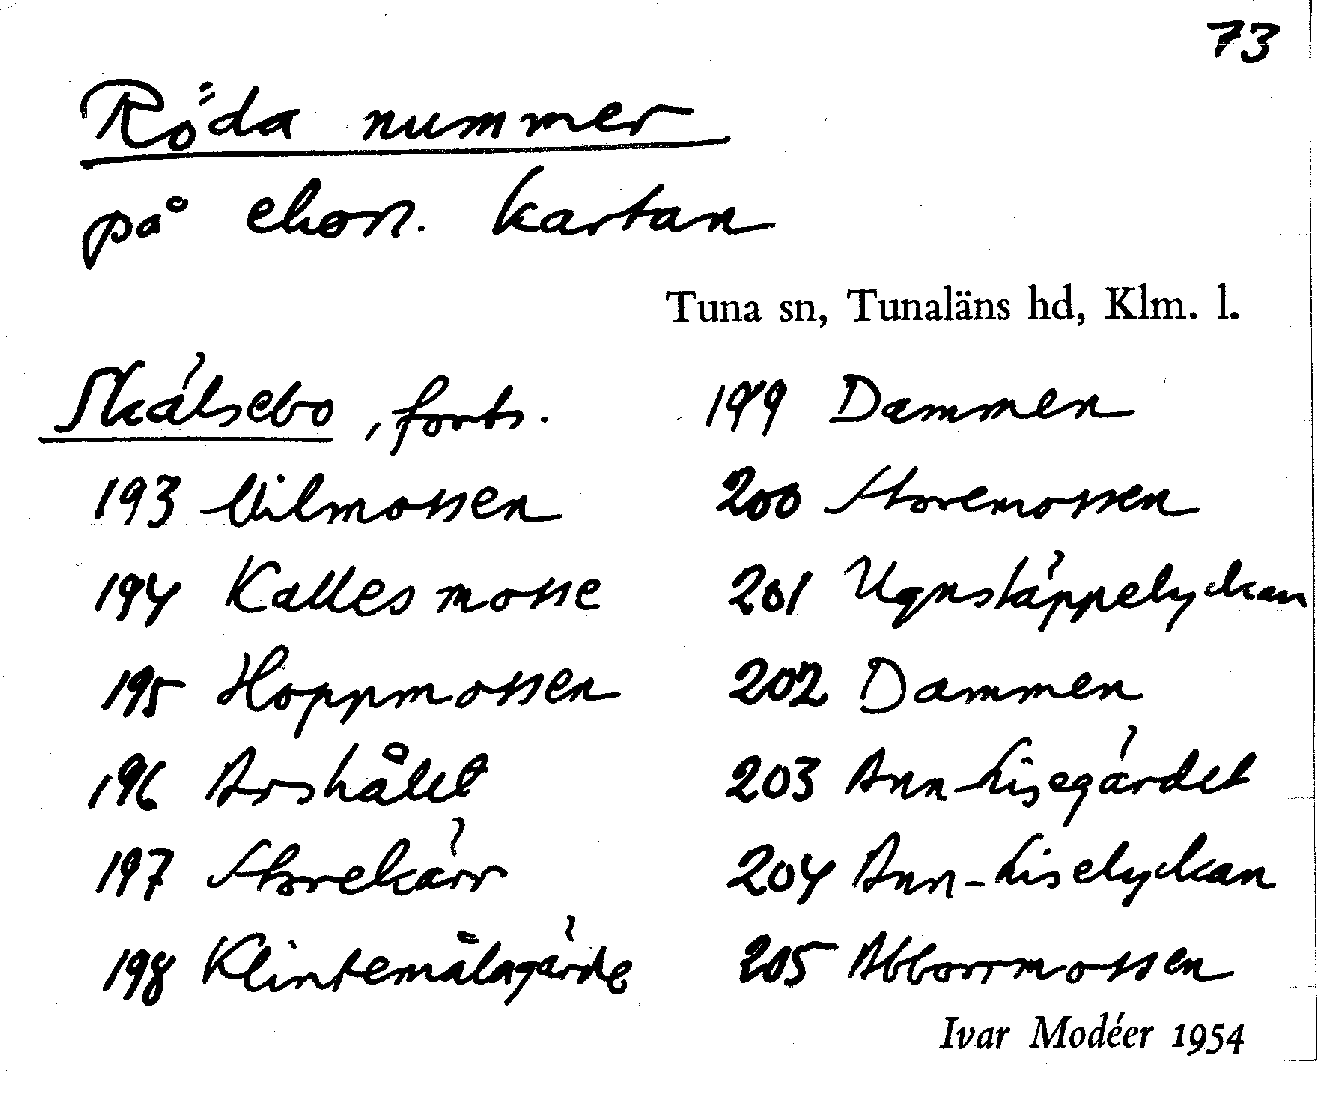 73
Röda nummer
på ekon. kartan
Tuna sn, Tunaläns hd, Klm. l.
Skälsebo, forts.
193 Vilmossen
194 Kalles mosse
195 Hoppmossen
196 Arshålet
197 Storekärr
198 Klintemålagärde
199 Dammen
200 Storemossen
201 Ugnstäppelyckan
202 Dammen
203 Ann-Lisegärdet
204 Ann-Liselyckan
205 Abborrmossen
Ivar Modéer 1954